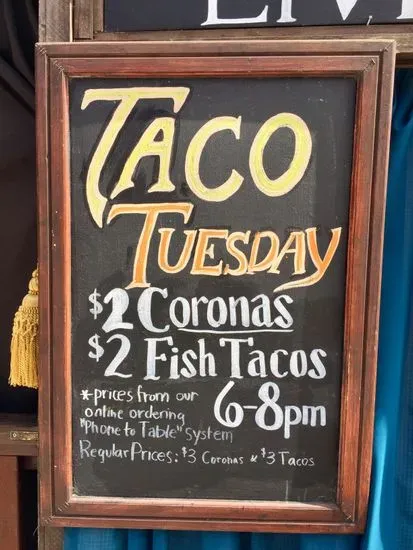 TACO
TUESDAY
$2 Coronas
$2 Fish Tacos
*prices from our
online ordering
"Phone to Table" System
6-8pm
Regular Prices: $3 Coronas & $3 Tacos